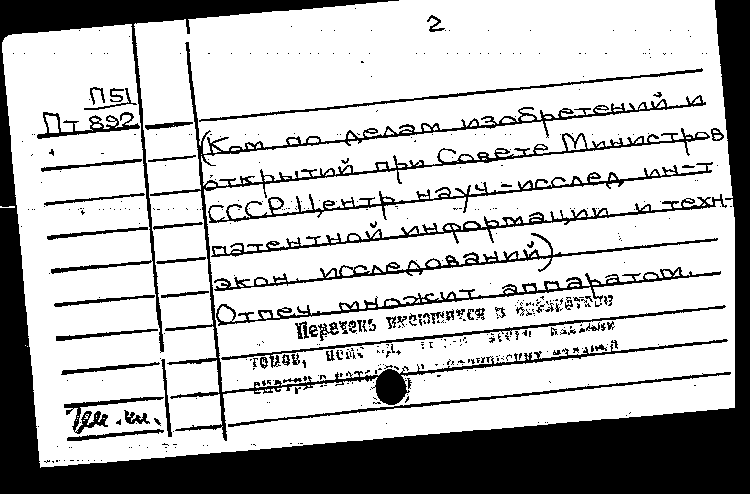 2
П51
Пт 892
(Ком. по делам изобретений и
открытий при Совете Министров
СССР. Центр. науч.-исслед. ин-т
патентной информации и техн-
экон. исследований).
Отпеч. множит. аппаратом.
Перечень имеющихся в библиотеке
томов, издания
смотри в